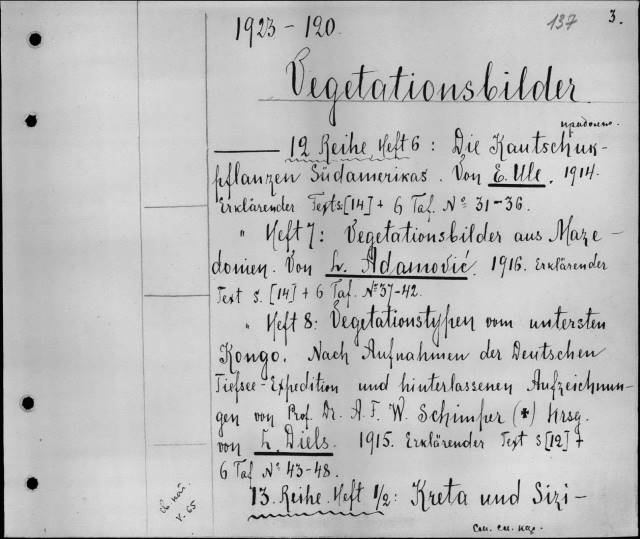 1923 - 120.
137 3.
Vegetationsbilder.
12 Reihe, Heft 6: Die Kautschuk-
pflanzen Südamerikas. Von E. Ule. 1914.
Erklärender Text s. [14] + 6 Taf. № 31-36.
" Heft 7: Vegetationsbilder aus Maze-
donien. Von L. Adamović. 1916. Erklärender
Text s. [14] + 6 Taf. № 37-42.
" Heft 8: Vegetationstypen vom untersten
Kongo. Nach Aufnahmen der Deutschen
Tiefsee-Expedition und hinterlassenen Aufzeichnun-
gen von Prof. Dr. A. F. W. Schimper (✝) hrsg.
von L. Diels. 1915. Erklärender Text s [12] +
6 Taf № 43-48.
13. Reihe. Heft 1/2: Kreta und Sizi-